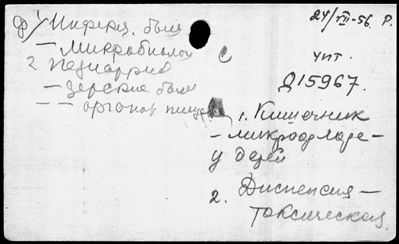 ф) 1 Инфекц. бол
— микробиолог
2 Педиатрия
— детские бол
— — органов пищ
С
24/VII-56. Р.
чит.
Д15967.
1. Кишечник
— микрофлора —
у детей
2. Диспепсия —
токсическая.